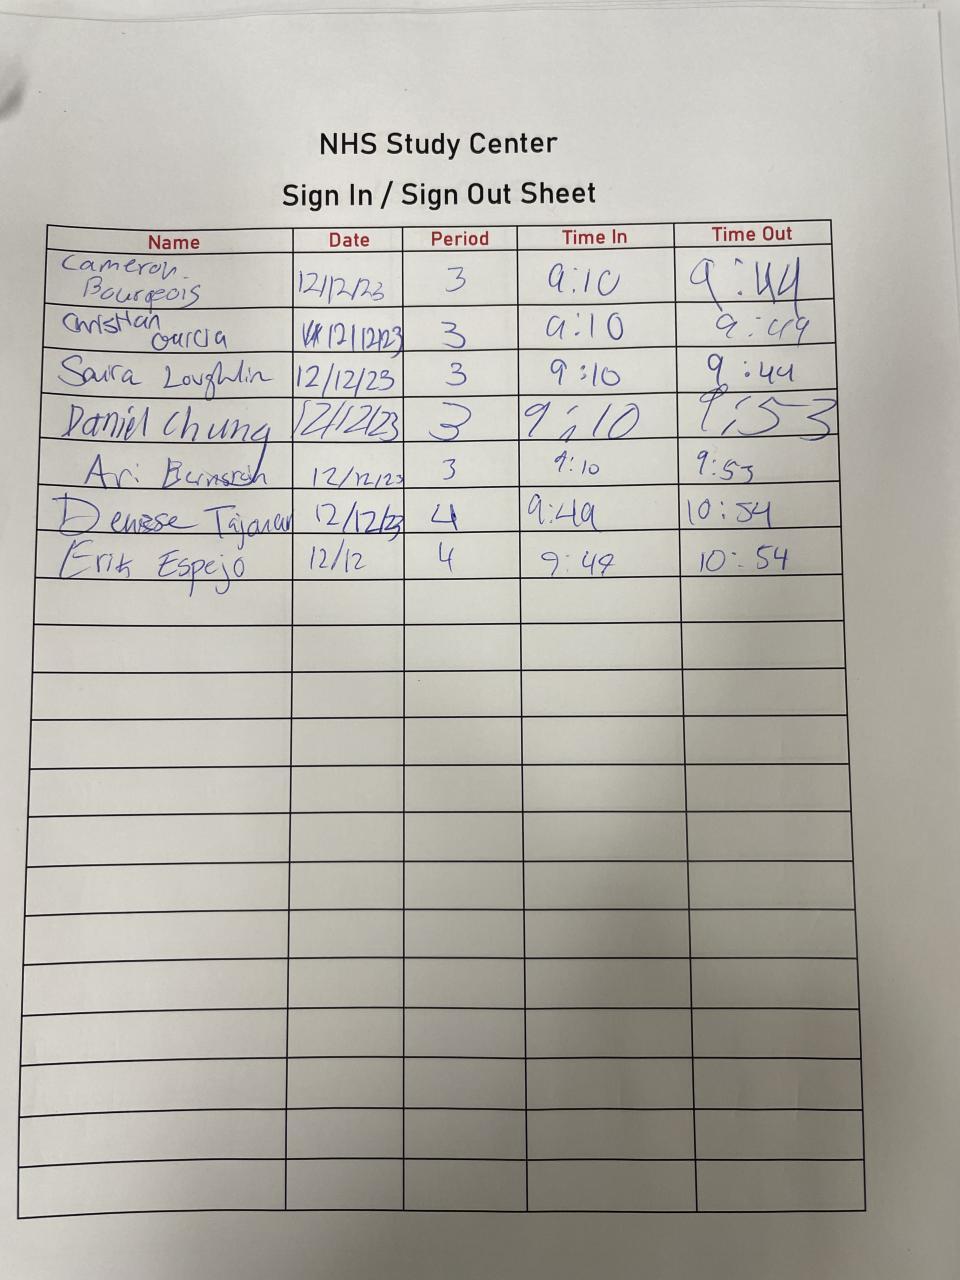 NHS Study Center
Sign In / Sign Out Sheet
Name Date Period Time In Time Out
Cameron
Bourgeois 12/12/23 3 9:10 9:44
Christian
Garcia 12/12/23 3 9:10 9:49
Loughlin 12/12/23 3 9:10 9:44
Daniel Chung 12/12/23 3 9:10 9:53
Ari 12/12/23 3 9:10 9:53
12/12/23 4 9:49 10:54
Erik Espejo 12/12 4 9:49 10:54